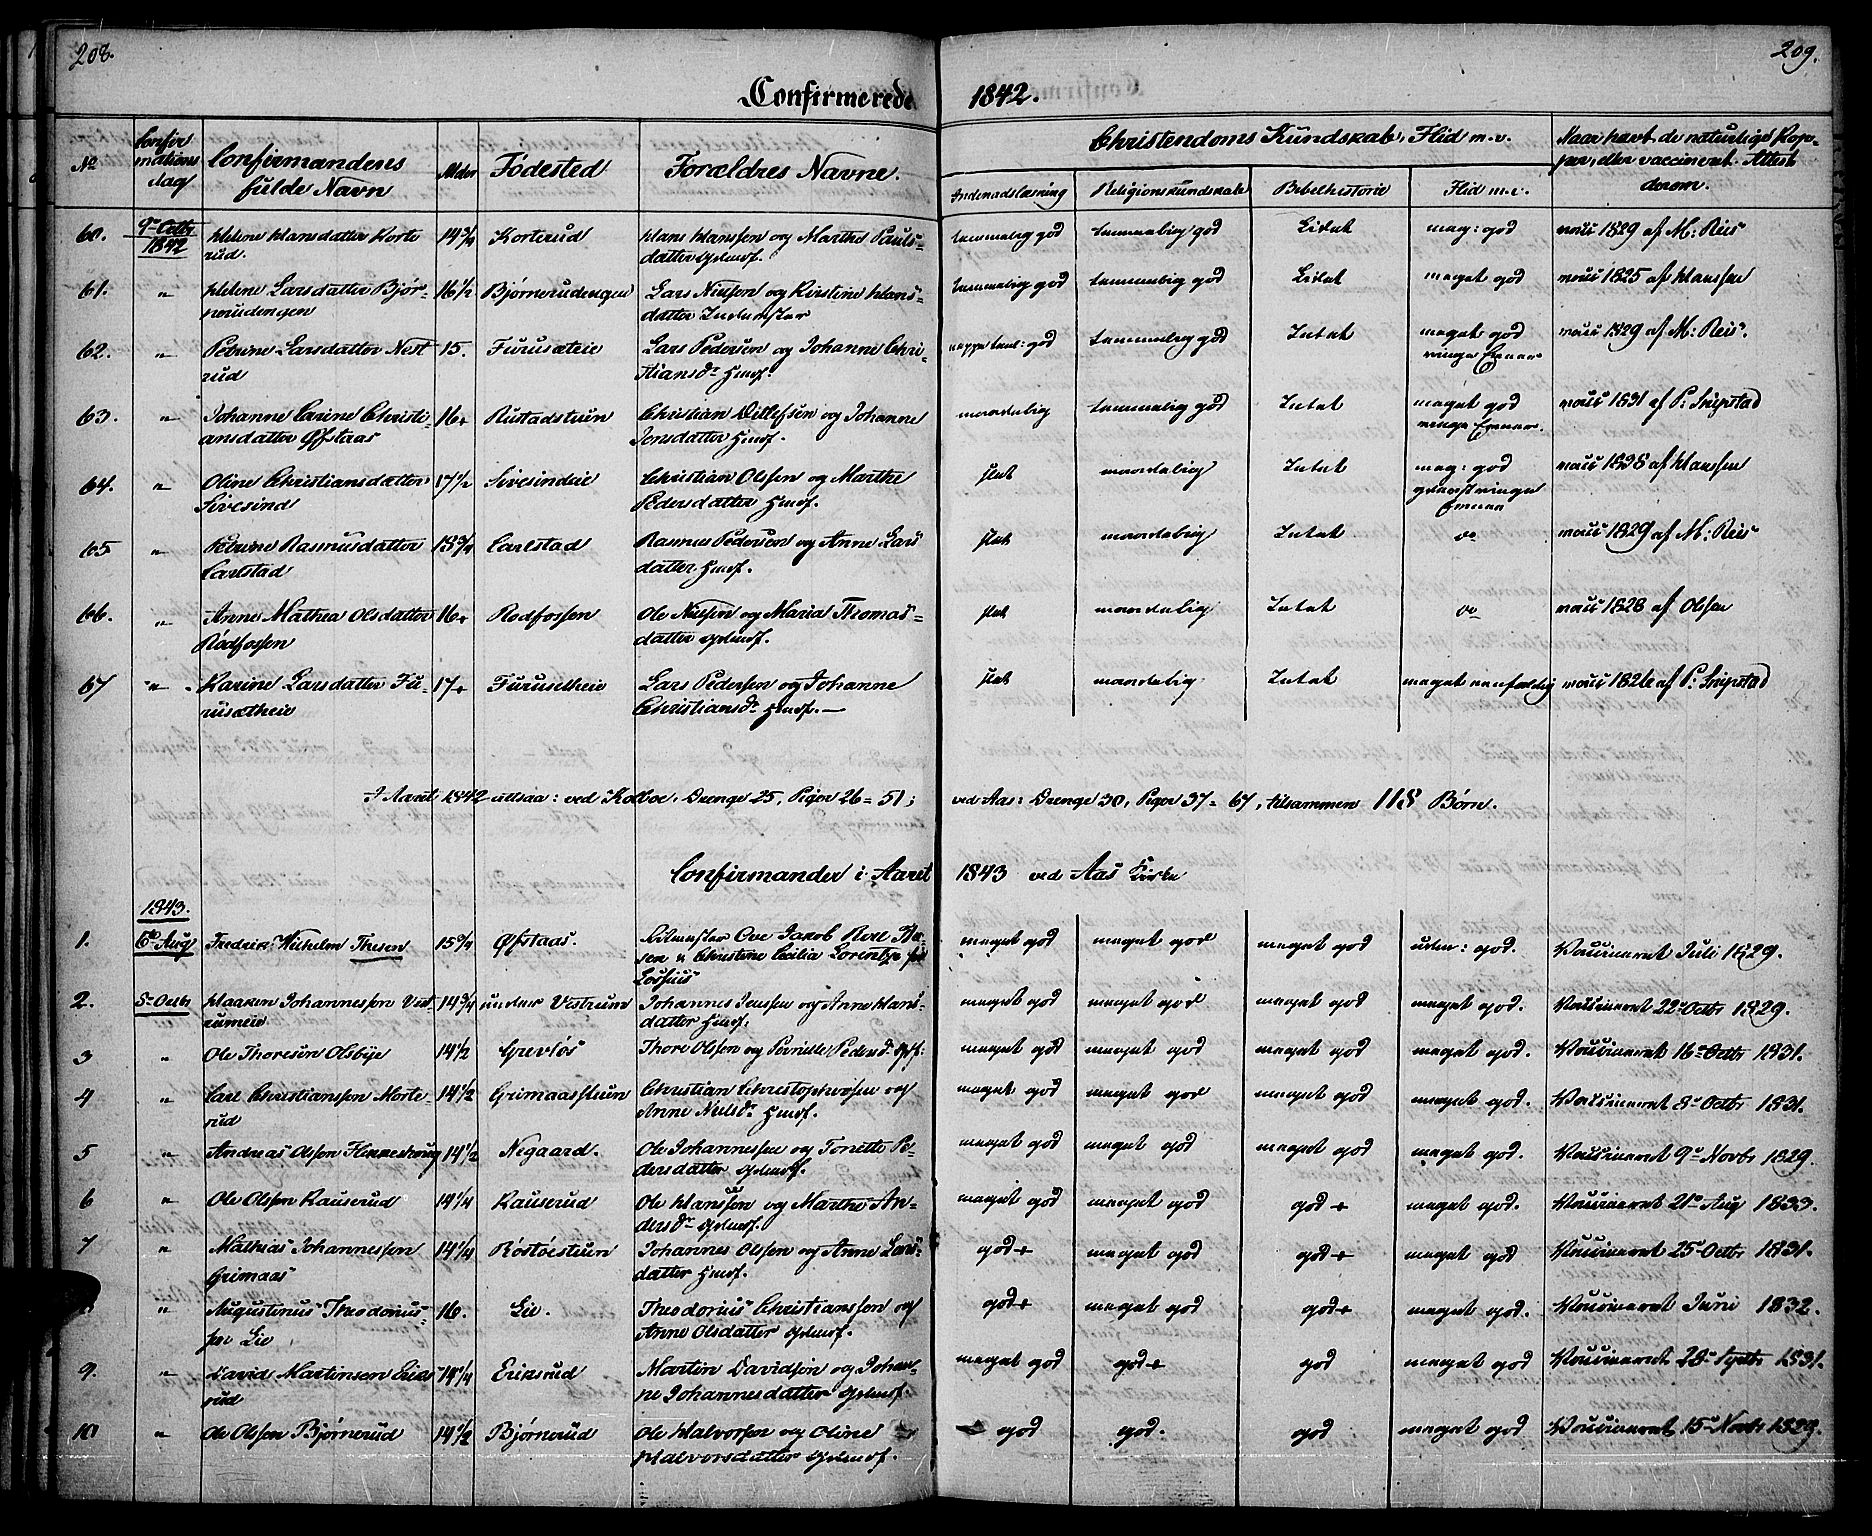 208.
209.
Confirmerede 1842.
No
Confirmations dag
Confirmandens fulde Navn
Alder
Fødested
Forældres Navne.
Christendoms Kundskab, Flid m.v.
Indenadslæsning
Religionskundskab
Bibelhistorie
Flid m.v.
Naar havt de naturlige Kopper, eller vaccineret. Attest derom.
60. 9de Octbr 1842 Helene Hansdatter Korterud. 14 3/4 Korterud Hans Hanssen og Marthe Paulsdatter Gdmdf. temmelig god temmelig god Lidet meg: god vacc 1829 af M: Reis
61. " Helene Larsdatter Bjørnerudengen 16 1/2 Bjørnerudengen Lars Nielsen og Kirstine Hansdatter temmelig god temmelig god Lidet meget god vacc 1825 af Hanssen
62. " Petrine Larsdatter Nestrud 15. Furusæteie Lars Pedersen og Johanne Christiansdr Hmdf. neppe tem: god temmelig god Intet meget god ringe Evner vacc 1829 af M: Reis.
63. " Johanne Carine Christiansdatter Øfstaas 16 Rustadstuen Christian Ditlefsen og Johanne Jensdatter Hmdf. maadelig temmelig god Intet meget god ringe Evner. vacc 1831 af P: Snipstad
64. " Oline Christiansdatter Sivesind 17 1/2 Sivesindeie Christian Olssen og Marthe Pedersdatter Hmdf. slet maadelig Intet meg: god ringe Evner vacc 1828 af Hanssen
65 " Petrine Rasmusdatter Carlstad 15 3/4 Carlstad Rasmus Pedersen og Anne Larsdatter Hmdf. slet maadelig Intet do vacc 1829 af M: Reis
66. " Anne Mathea Olsdatter Rødfossen 16 Rodfossen Ole Nielsen og Maria Thomasdatter Gdmdf. slet maadelig Intet do vacc 1828 af Olsen
67 " Karine Larsdatter Furusætheie 17 Furusetheie Lars Pedersen og Johanne Christiansdr Hmdf. slet maadelig Intet meget eenfoldig vacc 1826 af P: Snipstad
I Aaret 1842 altsaa: ved Kolboe, Drenge 25, Piger 26 = 51; ved Aas: Drenge 30, Piger 37 = 67, tilsammen 118 Børn.
Confirmander i Aaret 1843 ved Aas Kirke
1843.
1. 6te Aug Fredrik Wilhelm Thesen 15 3/4 Øfstaas. Ove Jakob Thesen & Christine Cecilia meget god meget god meget god udm: god. Vaccineret Juli 1829.
2. 5te Octbr Haaken Johannessen Vestrumeie 14 3/4 under Vestrum Johannes Jenssen og Anne Hansdatter Hmdf. meget god meget god meget god meget god. Vaccineret 22de Octbr 1829.
3 " Ole Thoresen Olsbye 14 1/2 Grevløs Thore Olssen og Pernille Pedersd meget god meget god meget god meget god. Vaccineret 16de Octbr 1831.
4 " Carl Christianssen Morterud 14 1/2 Grimaasstuen Christian Christophersen og Anne Nielsdr Hmdf. meget god meget god meget god meget god. Vaccineret 8de Octbr 1831.
5 " Andreas Olssen 14 1/2 Negaard. Ole Johannessen og Tonette Pedersdatter Gdmdf. meget god meget god meget god meget god. Vaccineret 9de Novbr 1829.
6 " Ole Olssen Kauserud 14 1/4 Kauserud Ole Hanssen og Marthe Andersdr Gdmdf. meget god meget god god + meget god. Vaccineret 21de Aug 1833.
7 " Mathias Johannessen Grimaas 14 1/4 Røstøestuen Johannes Olssen og Anne Larsdatter Hmdf. god + meget god god + meget god Vaccineret 25de Octbr 1831.
" Augustinus Theodoriussen Lie 16. Lie. Theodorius Christianssen og Anne Olsdatter Gdmdf. god + meget god god + meget god. Vaccineret Juni 1832.
9. " David Martinsen Eriksrud 14 1/4 Eriksrud Martin Davidsen og Johanne Johannesdatter Gdmdf. meget god god + god meget god Vaccineret 28de Septbr 1831.
10 " Ole Olssen Bjørnerud 14 1/2 Bjørnerud Ole Halvorsen og Oline Halvorsdatter Gdmdf. god god. god meget god Vaccineret 15de Novbr 1829.